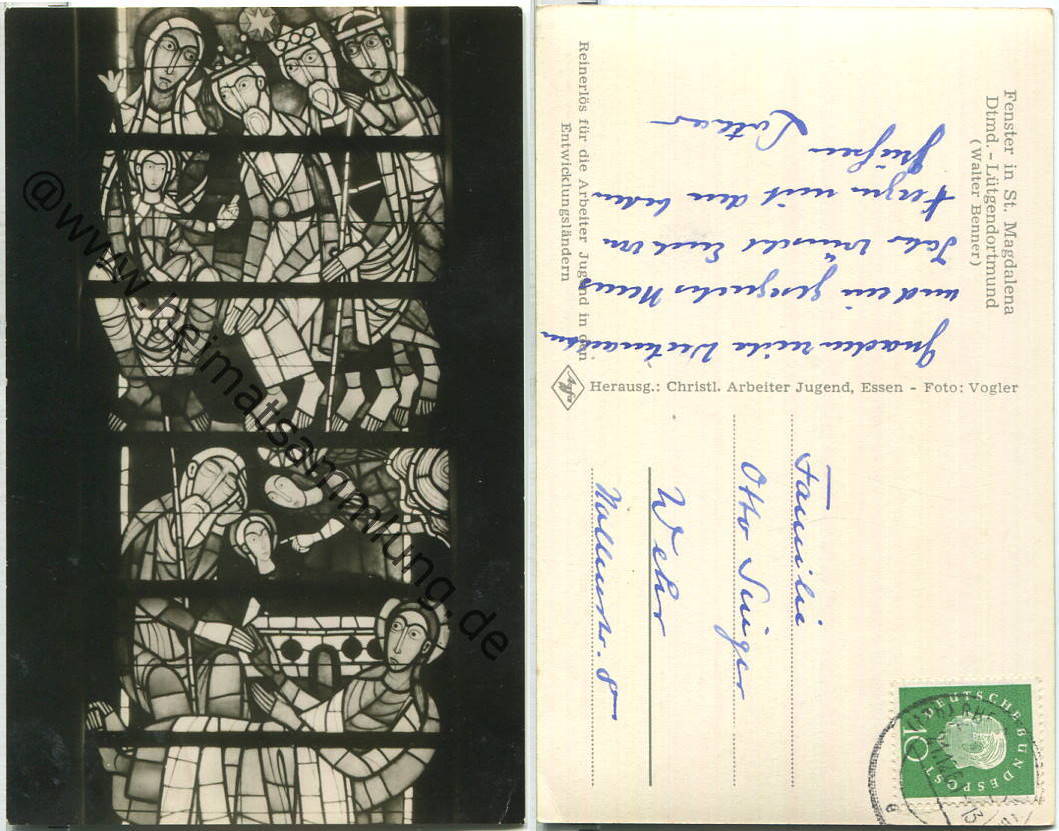 @www.heimatsammlung.de
Fenster in St. Magdalena
Dtmd.-Lütgendortmund
(Walter Benner)
Reinerlös für die Arbeiter Jugend in den
Entwicklungsländern
Herausg.: Christl. Arbeiter Jugend, Essen - Foto: Vogler
Gnadenreiche Weihnachten
und ein gesegnetes Neues
Jahr wünscht Euch von
Herzen mit den besten
Grüßen Lothar
Familie
Otto Singer
Wehr
DEUTSCHE BUNDESPOST
10